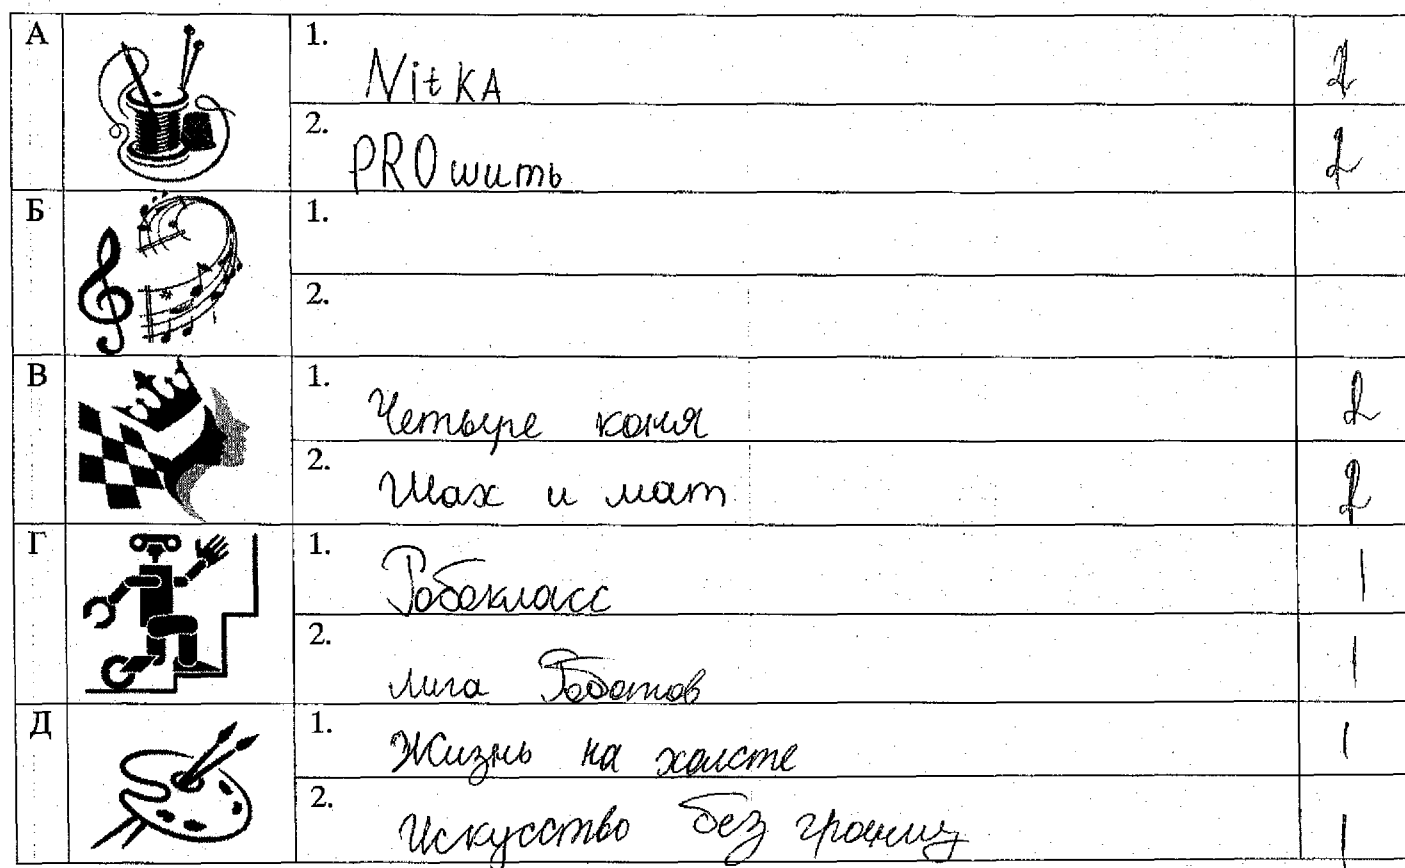 А
1.
NitKA
2
2.
PROшить
2
Б
1.
2.
В
1.
Четыре коня
2
2.
Шах и мат
2
Г
1.
Робокласс
1
2.
лига Роботов
1
Д
1.
Жизнь на холсте
1
2.
Искусство без границ
1